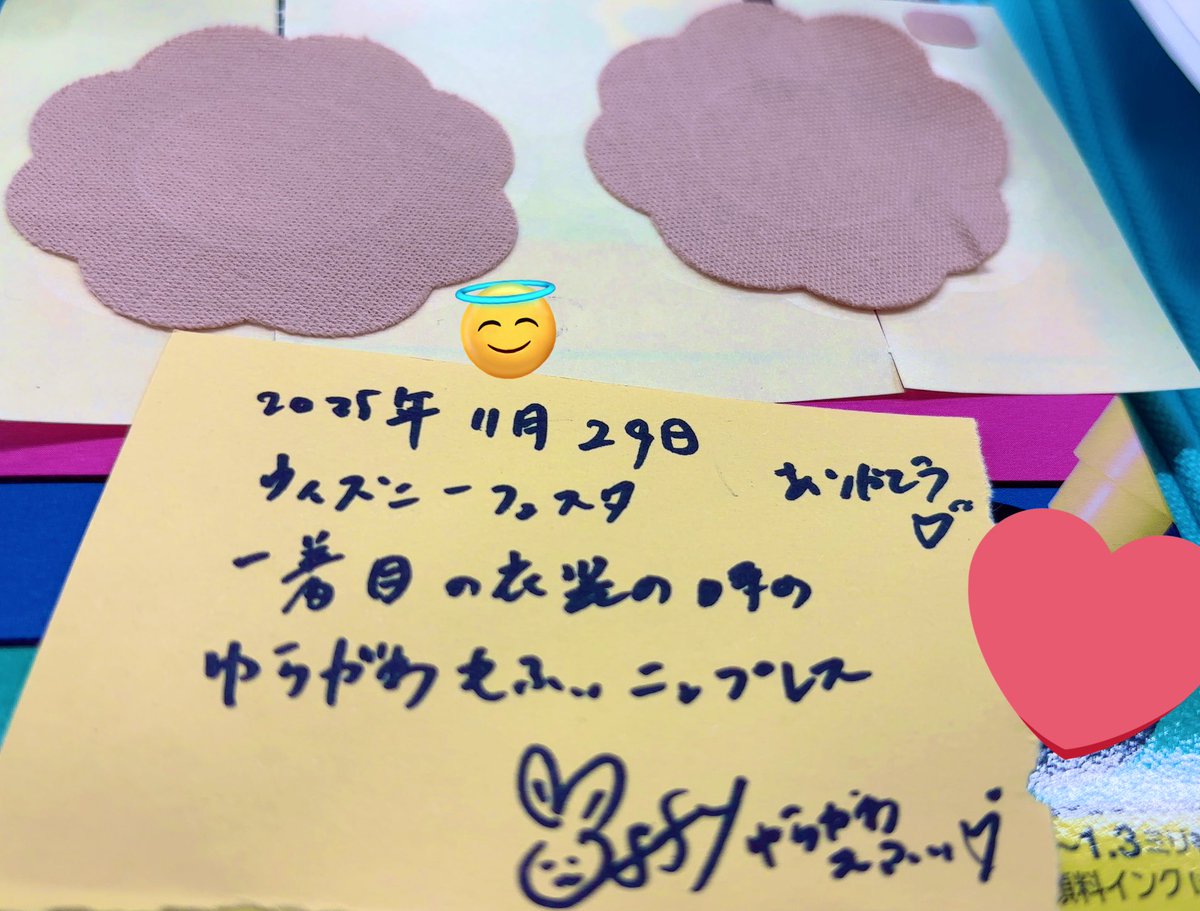 2025年 11月 29日
ウィズニーフェスタ
ありがとう♡
一着目の衣装の時の
ゆらがわもふぃ ニップレス
ゆらがわ
もふぃ♡
~1.3ミリ
顔料インク